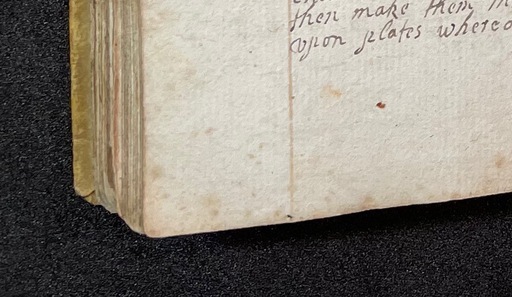 then make them
vpon plates where